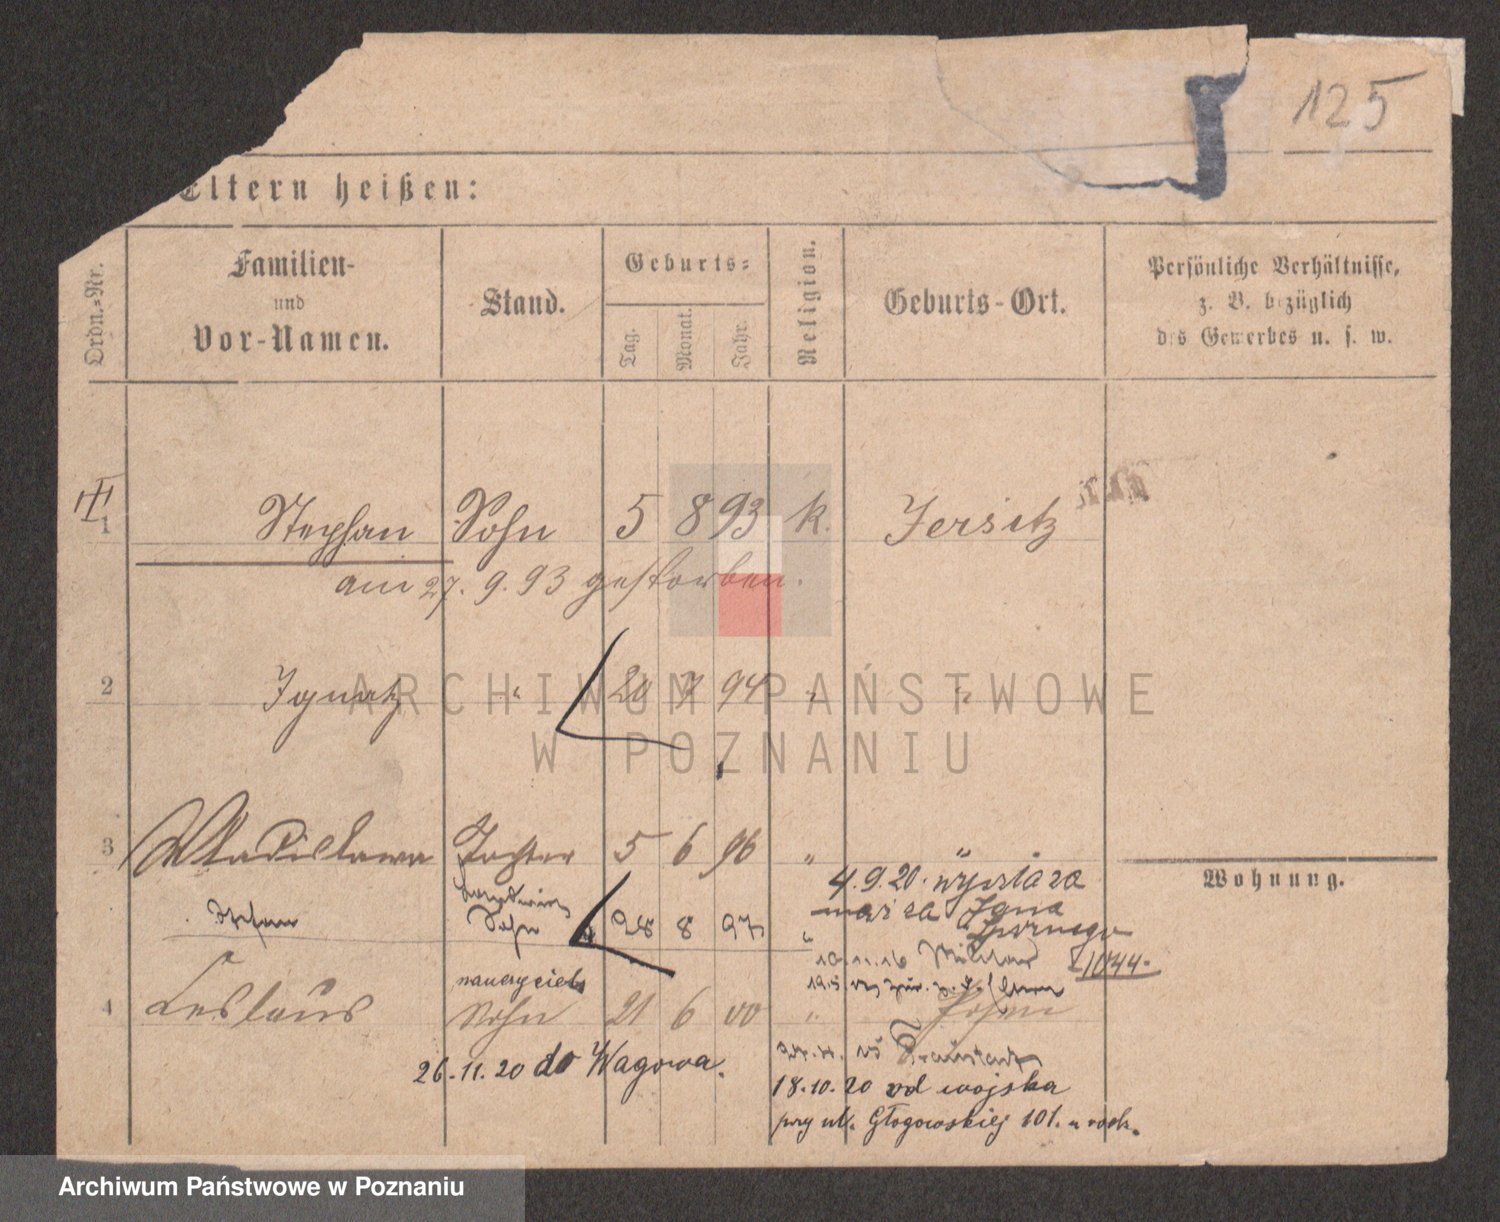 125
Eltern heißen:
Ordn.-Nr.
Familien-
und
Vor-Namen.
Stand.
Geburts-
Tag.
Monat.
Jahr.
Religion.
Geburts-Ort.
Persönliche Verhältnisse,
z. B. bezüglich
des Gewerbes u. s. w.
1 Stephan Sohn 5 8 93 k. Jersitz
am 27. 9. 93 gestorben.
2 Ignatz " 20 7 94 " "
ARCHIWUM PAŃSTWOWE
W POZNANIU
3 Wladislawa Tochter 5 6 96 " "
Wohnung.
4.9.20. wyszła za
Stefan Sohn 28 8 97 "
10.11.16 Militär 1044.
nauczyciel
4 Leslaus Sohn 21 6 00 " Posen
26.11.20 do Wągowa.
18.10.20 od wojska
przy ul. Głogowskiej 101. u rodz.
Archiwum Państwowe w Poznaniu